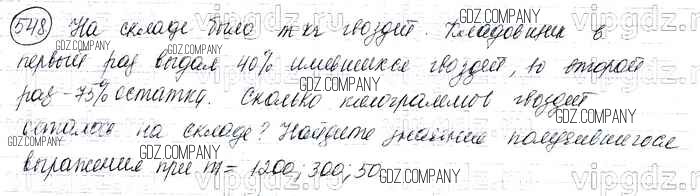 548 На складе было m кг гвоздей. Кладовщик в
первый раз выдал 40% имевшихся гвоздей, во второй
раз - 75% остатка. Сколько килограммов гвоздей
осталось на складе? Найдите значение получившегося
выражения при m = 1200; 300; 50.
GDZ.COMPANY
GDZ.COMPANY
GDZ.COMPANY
GDZ.COMPANY
GDZ.COMPANY
GDZ.COMPANY
GDZ.COMPANY
GDZ.COMPANY
vipgdz.ru